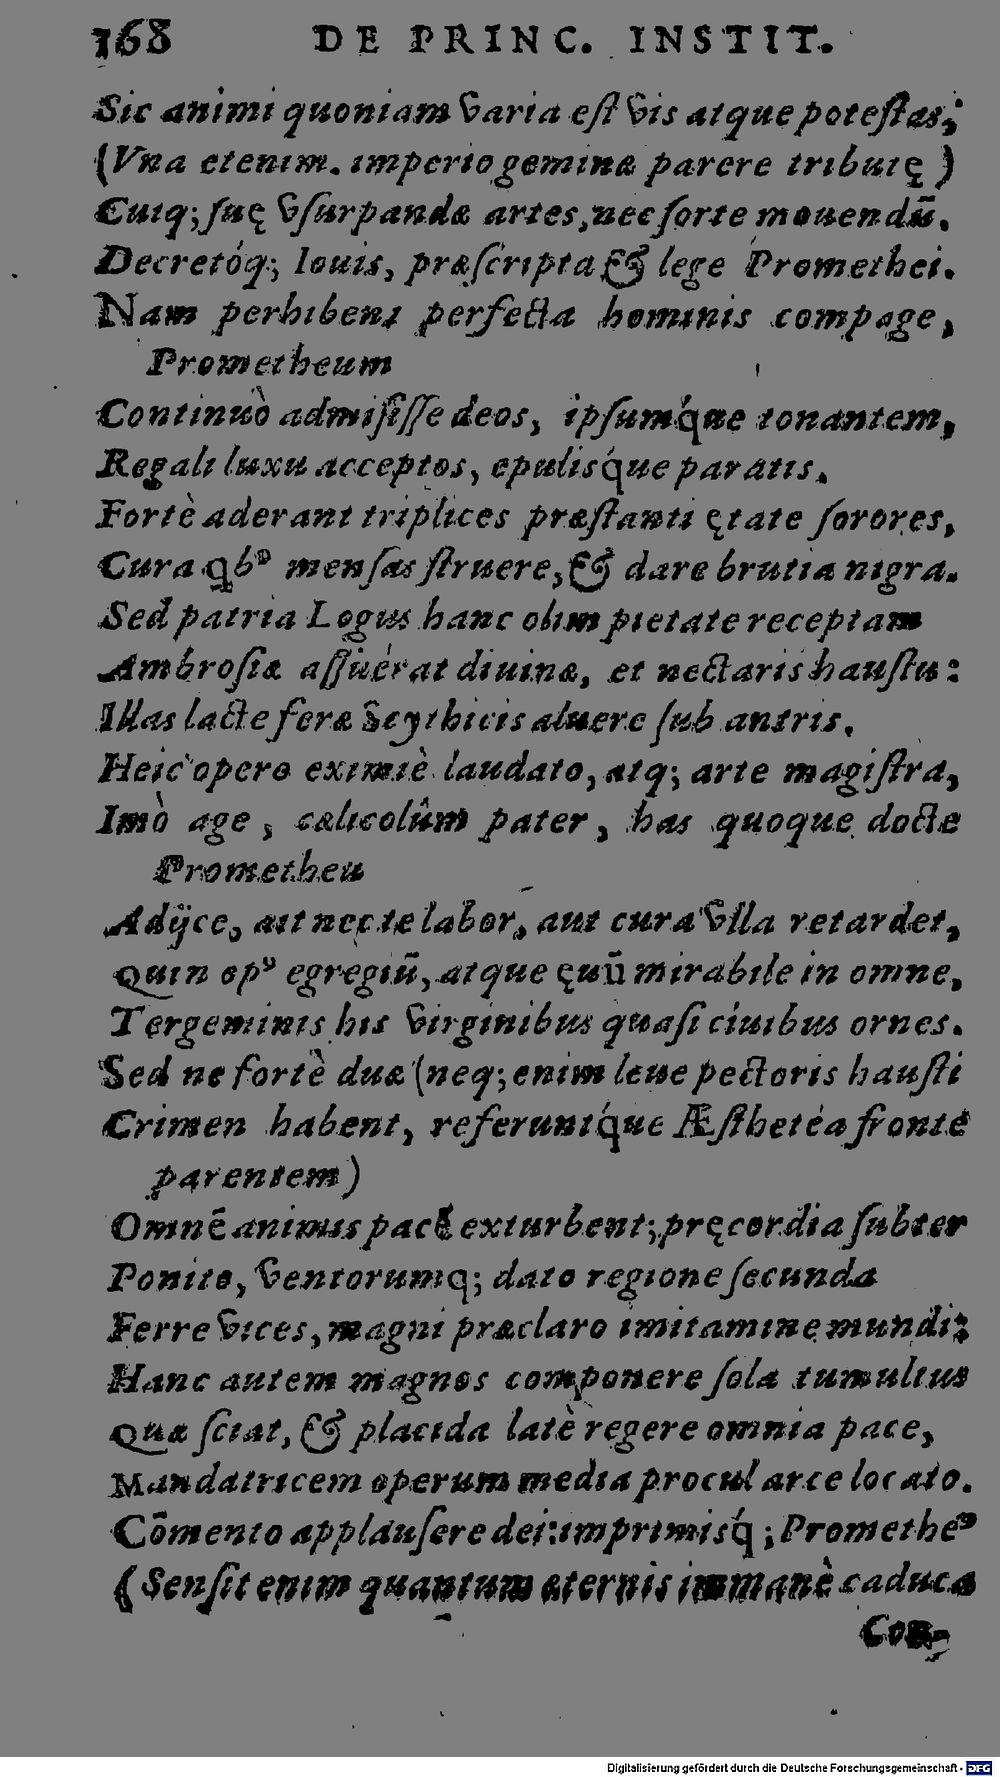 168 DE PRINC. INSTIT.
Sic animi quoniam varia est vis atque potestas;
(Vna etenim. imperio geminæ parere tributę)
Cuiq; suę vsurpandæ artes, nec forte mouendū.
Decretóq; Iouis, præscripta & lege Promethei.
Nam perhibent perfecta hominis compage,
Prometheum
Continuò admisisse deos, ipsumq́ue tonantem,
Regali luxu acceptos, epulisq́ue paratis.
Fortè aderant triplices præstanti ętate sorores,
Cura qbꝰ mensas struere, & dare brutia nigra.
Sed patria Logus hanc olim pietate receptam
Ambrosiæ assuérat diuinæ, et nectaris haustu:
Illas lacte feræ Scythicis aluere sub antris.
Heic opere eximiè laudato, atq; arte magistra,
Imò age, cælicolûm pater, has quoque docte
Prometheu
Adijce, ait nec te labor, aut cura vlla retardet,
Quin opꝰ egregiū, atque ęuū mirabile in omne,
Tergeminis his virginibus quasi ciuibus ornes.
Sed ne fortè duæ (neq; enim leue pectoris hausti
Crimen habent, referuntq́ue Æsthetéa fronte
parentem)
Omnē animis pacē exturbent; pręcordia subter
Ponito, ventorumq; dato regione secunda
Ferre vices, magni præclaro imitamine mundi:
Hanc autem magnos componere sola tumultus
Quæ sciat, & placida latè regere omnia pace,
Mandatricem operum media procul arce locato.
Cōmento applausere dei: imprimisq́; Prometheꝰ
(Sensit enim quantum æternis immanè caduca
Con-
Digitalisierung gefördert durch die Deutsche Forschungsgemeinschaft - DFG